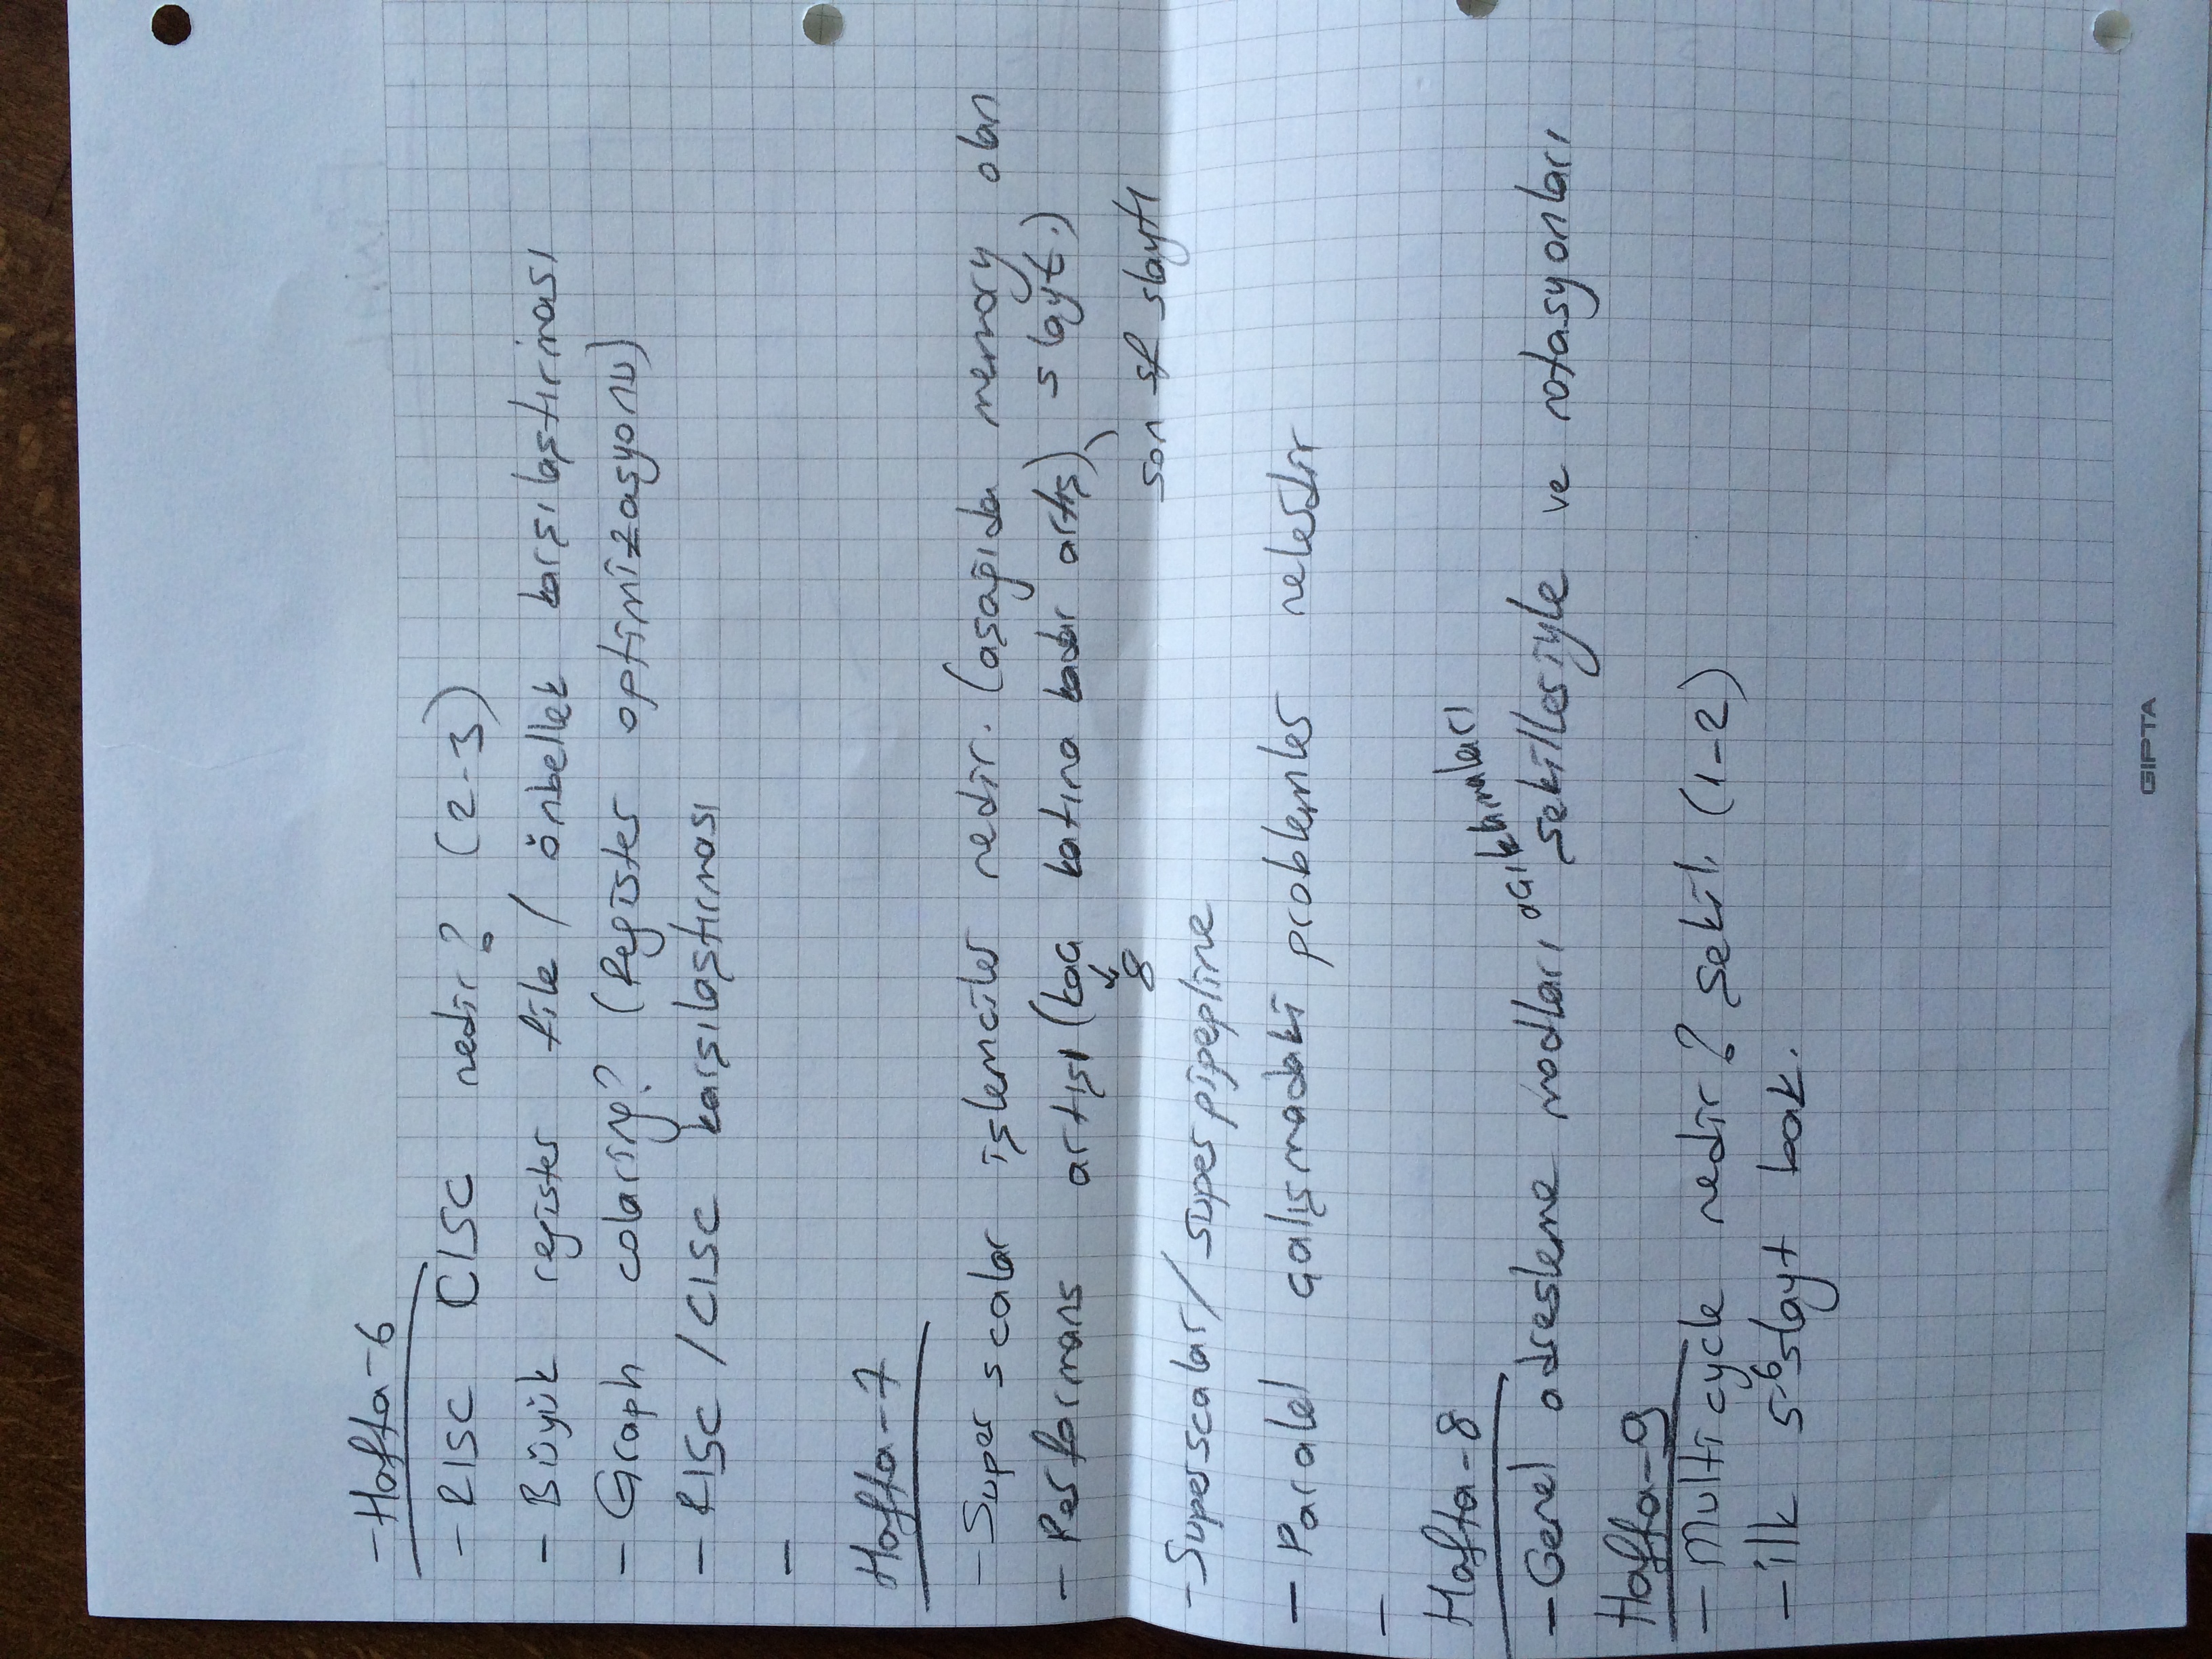 -Hafta-6
- RISC CISC nedir? (2-3)
- Büyük register file / önbellek karşılaştırması
- Graph colaring? (Register optimizasyonu)
- RISC / CISC karşılaştırması
-
Hafta-7
- Super scalar işlemciler nedir. (aşağıda memory olan slayt.)
- Performans artışı (kaç katına kadar artış)
8
son sf slaytı
- Superscalar / süper pipepline
- Paralel çalışmadaki problemler nelerdir
-
Hafta-8
açıklamaları
- Genel adresleme modları şekilleriyle ve notasyonları
Hafta-9
- Multi cycle nedir? Şekil. (1-2)
- ilk 5-6 slayt bak.
GIPTA